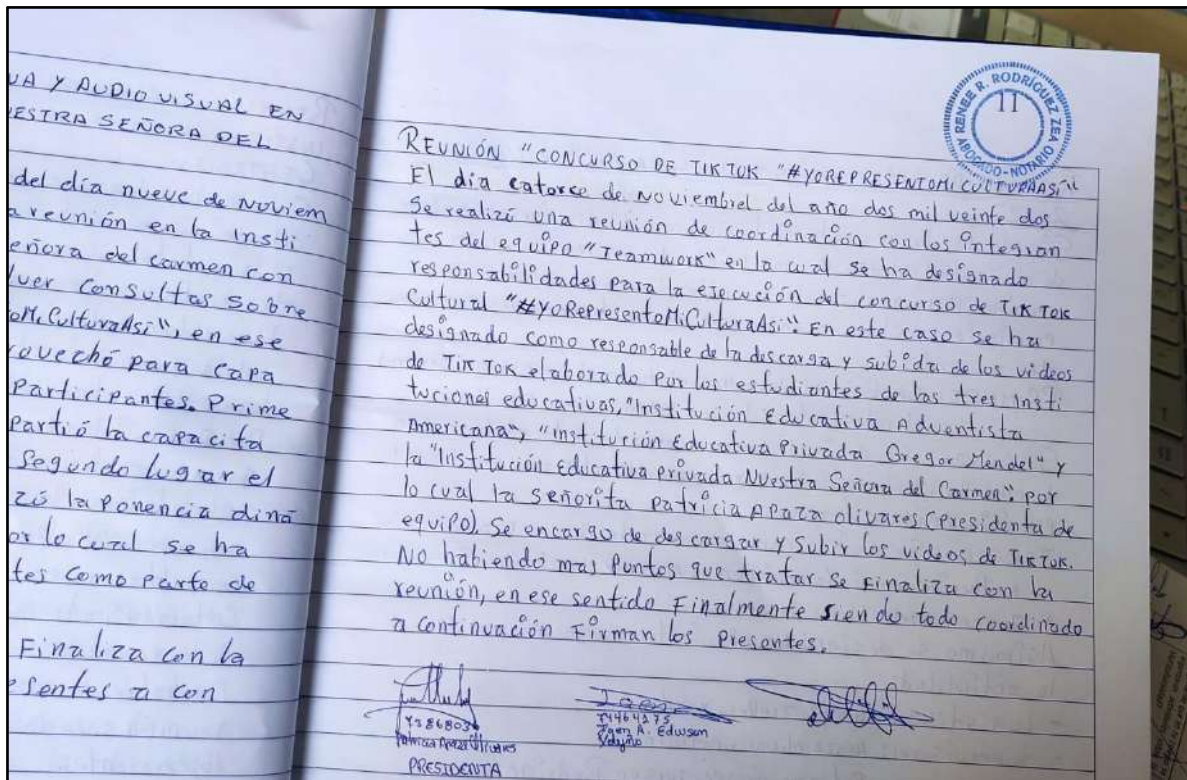 UA Y AUDIO VISUAL EN
ESTRA SEÑORA DEL
del día nueve de Noviem
a reunión en la insti
eñora del carmen con
lver consultas sobre
oMiCulturaAsí", en ese
rovechó para capa
Participantes. Prime
Partió la capacita
Segundo lugar el
zó la Ponencia diná
or lo cual se ha
tes como parte de
Finaliza con la
esentes a con
RENEE R. RODRÍGUEZ ZEA
ABOGADO-NOTARIO
11
REUNIÓN "CONCURSO DE TIK TOK "#YOREPRESENTOMICULTURAASÍ"
El día catorce de Noviembrel del año dos mil veinte dos
Se realizó una reunión de coordinación con los integran
tes del equipo "Teamwork" en la cual se ha designado
responsabilidades para la ejecución del concurso de Tik Tok
Cultural "#YoRepresentoMiCulturaAsí". En este caso se ha
designado como responsable de la descarga y subida de los videos
de Tik Tok elaborado por los estudiantes de las tres insti
tuciones educativas, "Institución Educativa Adventista
Americana", "institución Educativa Privada Gregor Mendel" y
la "Institución Educativa privada Nuestra Señora del Carmen"; por
lo cual la señorita Patricia Apaza olivares (presidenta de
equipo). Se encargo de descargar y subir los videos de TikTok.
No habiendo mas Puntos que tratar se Finaliza con la
reunión, en ese sentido Finalmente siendo todo coordinado
a continuación Firman los presentes.
Patricia Apaza Olivares
PRESIDENTA
74464275
A. Edwson